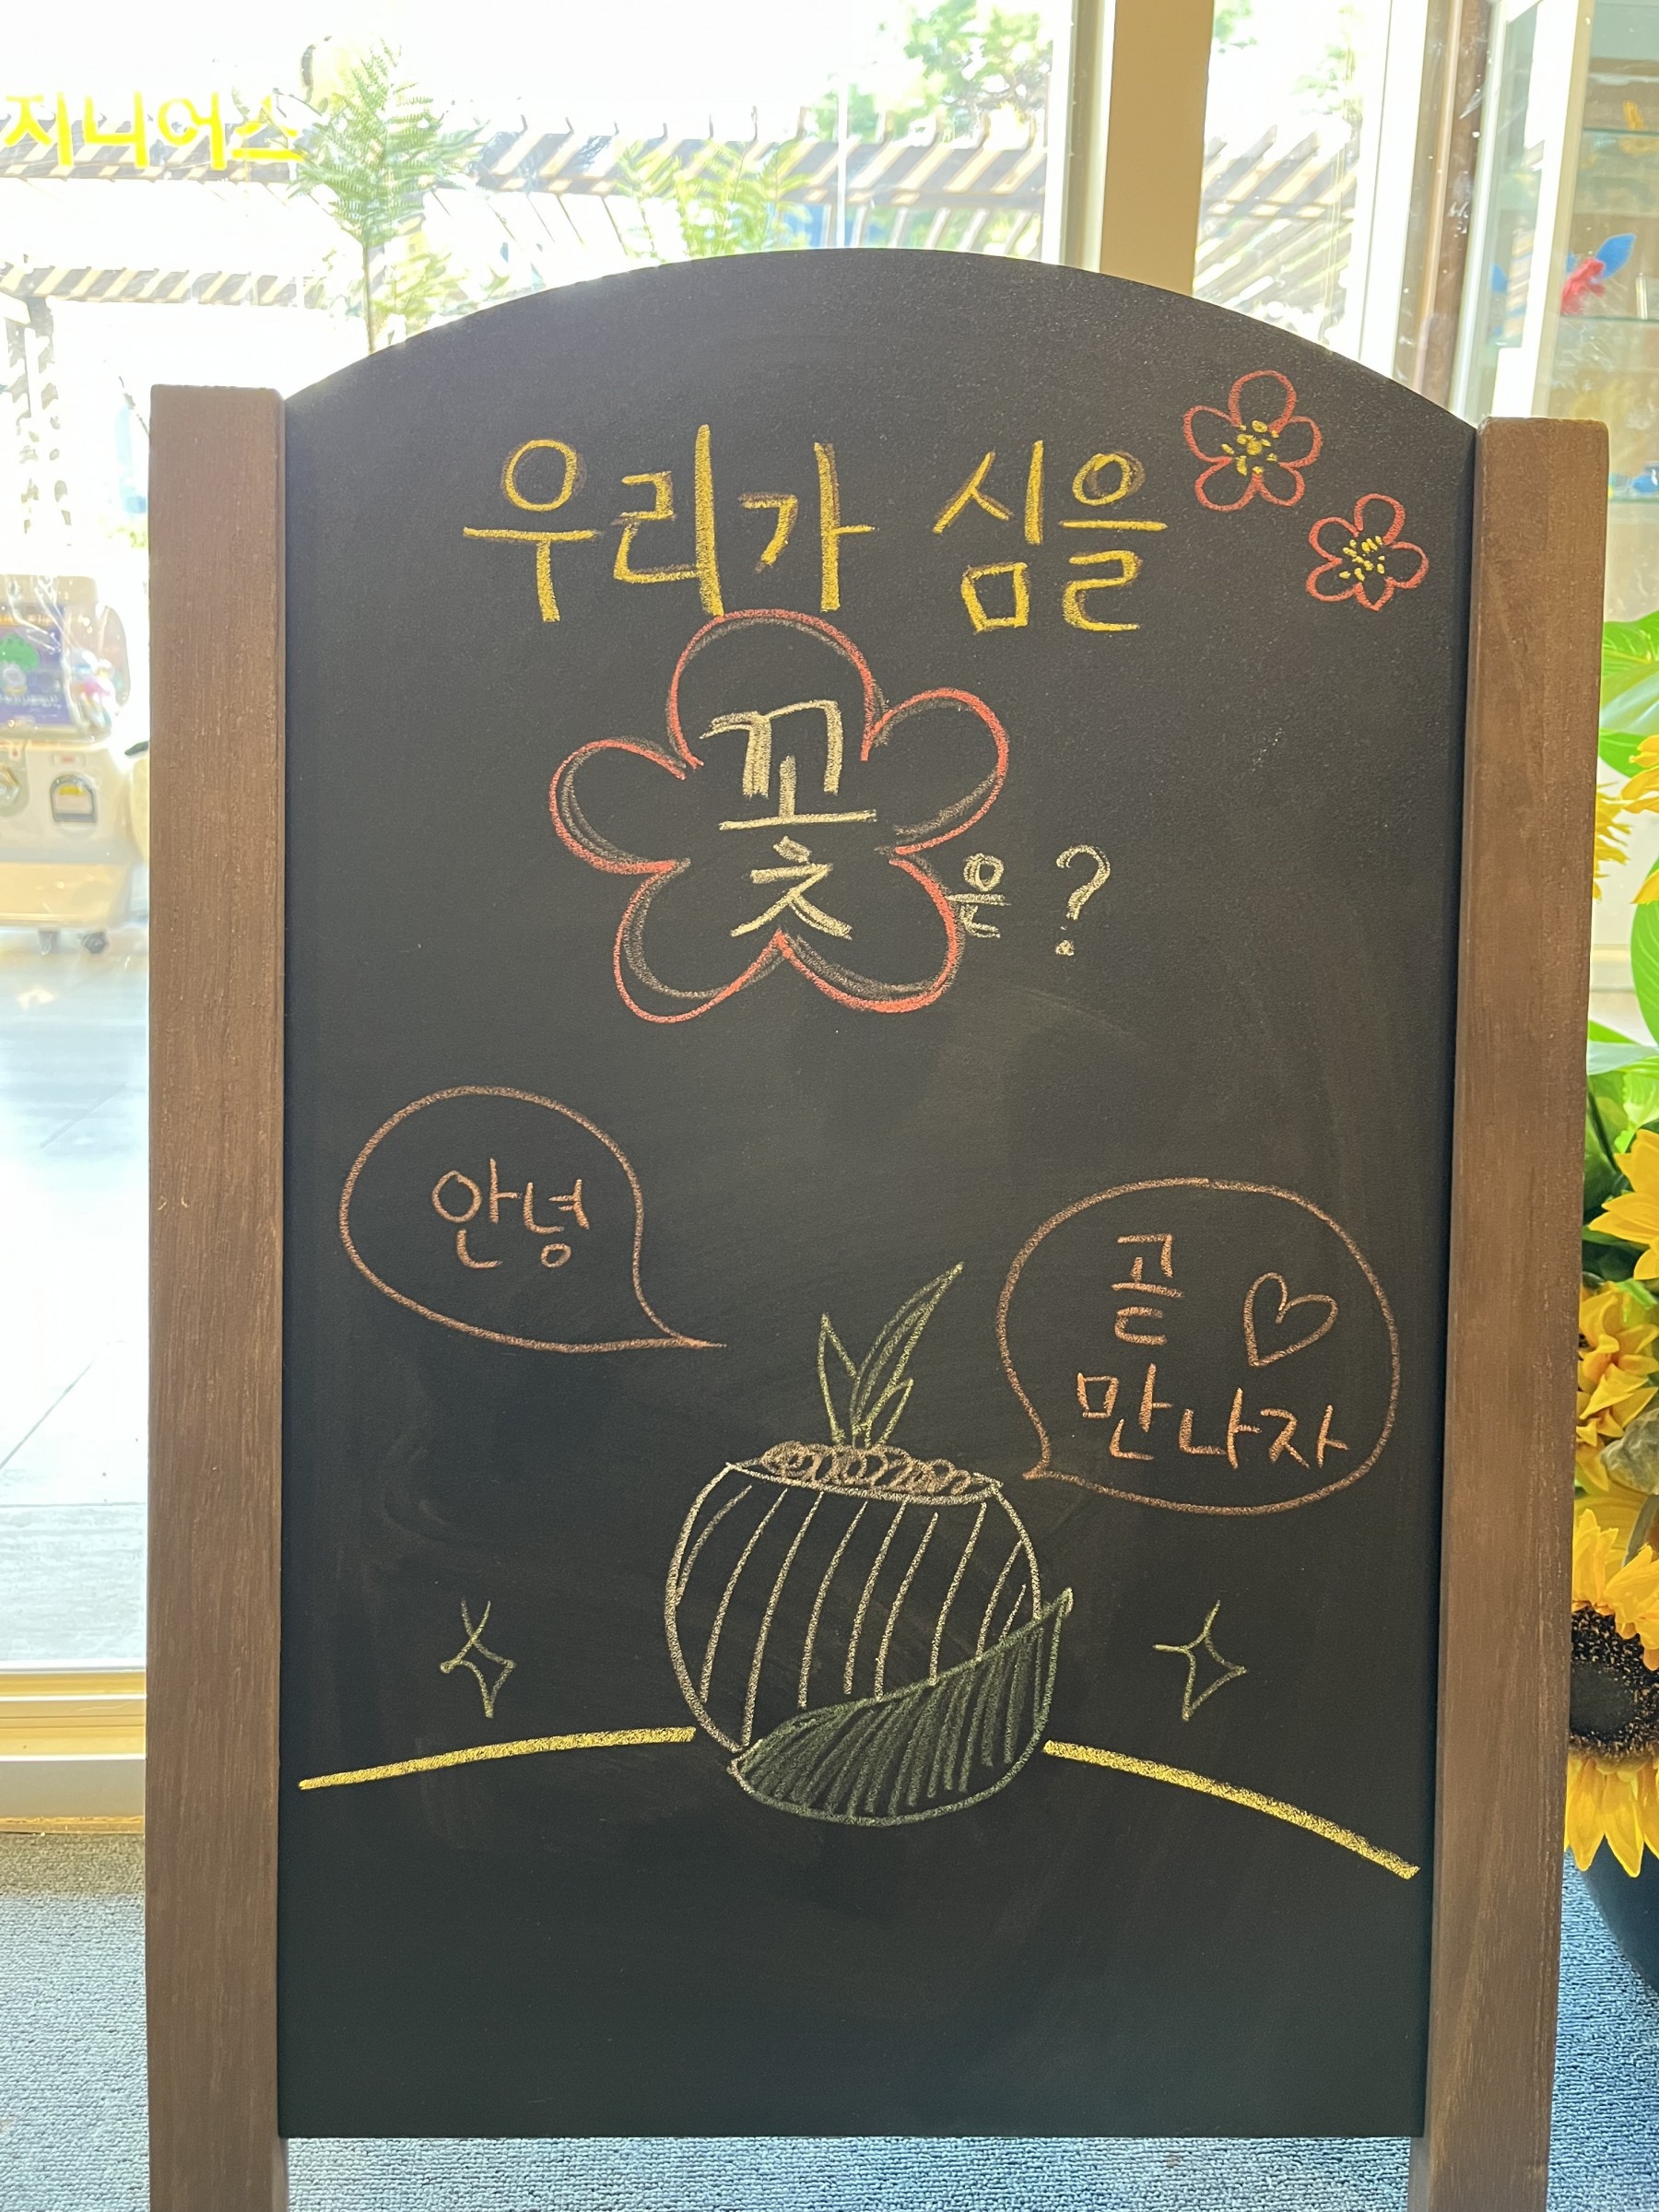 지니어스
우리가 심을
꽃은?
안녕
곧 ♡
만나자